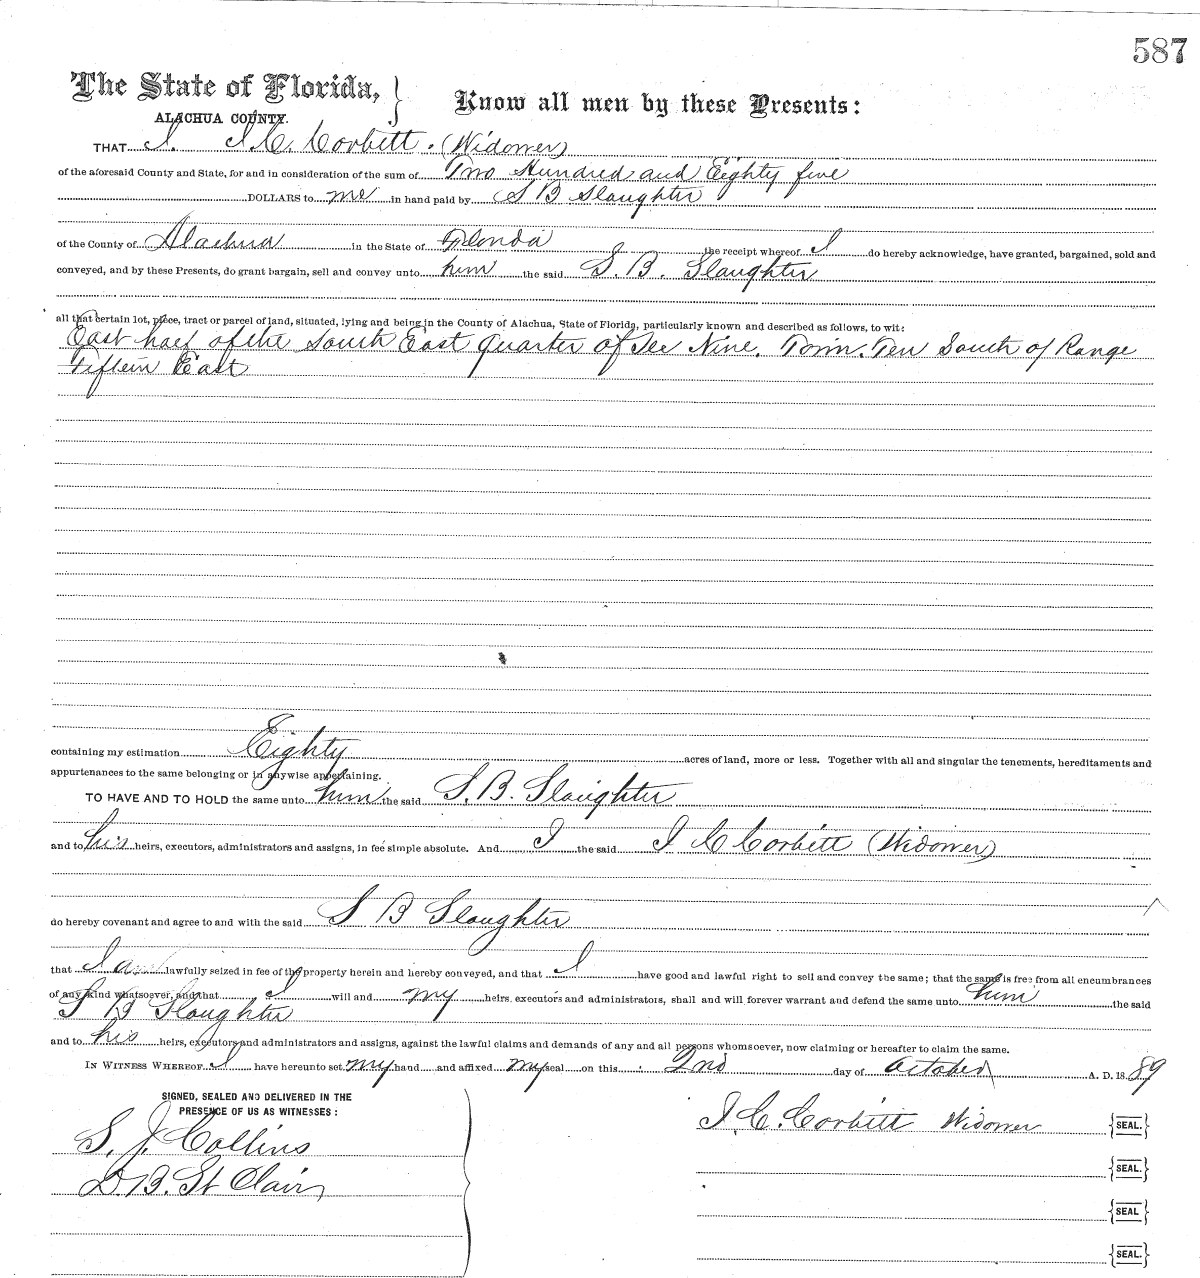 587
The State of Florida, } Know all men by these Presents:
ALACHUA COUNTY.
THAT I. I. C. Corbitt. (Widower)
of the aforesaid County and State, for and in consideration of the sum of Two Hundred and Eighty five
DOLLARS to me in hand paid by S B Slaughter
of the County of Alachua in the State of Florida the receipt whereof I do hereby acknowledge, have granted, bargained, sold and
conveyed, and by these Presents, do grant bargain, sell and convey unto him the said S. B. Slaughter
all that certain lot, piece, tract or parcel of land, situated, lying and being in the County of Alachua, State of Florida, particularly known and described as follows, to wit:
East half of the South East quarter of Sec Nine. Town. Ten South of Range
Fifteen East
containing my estimation Eighty acres of land, more or less. Together with all and singular the tenements, hereditaments and
appurtenances to the same belonging or in anywise appertaining.
TO HAVE AND TO HOLD the same unto him the said S. B. Slaughter
and to his heirs, executors, administrators and assigns, in fee simple absolute. And I the said I C Corbitt (Widower)
do hereby covenant and agree to and with the said S B Slaughter
that I am lawfully seized in fee of the property herein and hereby conveyed, and that I have good and lawful right to sell and convey the same; that the same is free from all encumbrances
of any kind whatsoever, and that I will and my heirs, executors and administrators, shall and will forever warrant and defend the same unto him the said
S B Slaughter
and to his heirs, executors and administrators and assigns, against the lawful claims and demands of any and all persons whomsoever, now claiming or hereafter to claim the same.
IN WITNESS WHEREOF I have hereunto set my hand and affixed my seal on this 2nd day of October A. D. 18 89
SIGNED, SEALED AND DELIVERED IN THE
PRESENCE OF US AS WITNESSES:
S. J. Collins
D. B. St Clair
I. C. Corbitt Widower {SEAL.}
{SEAL.}
{SEAL}
{SEAL.}